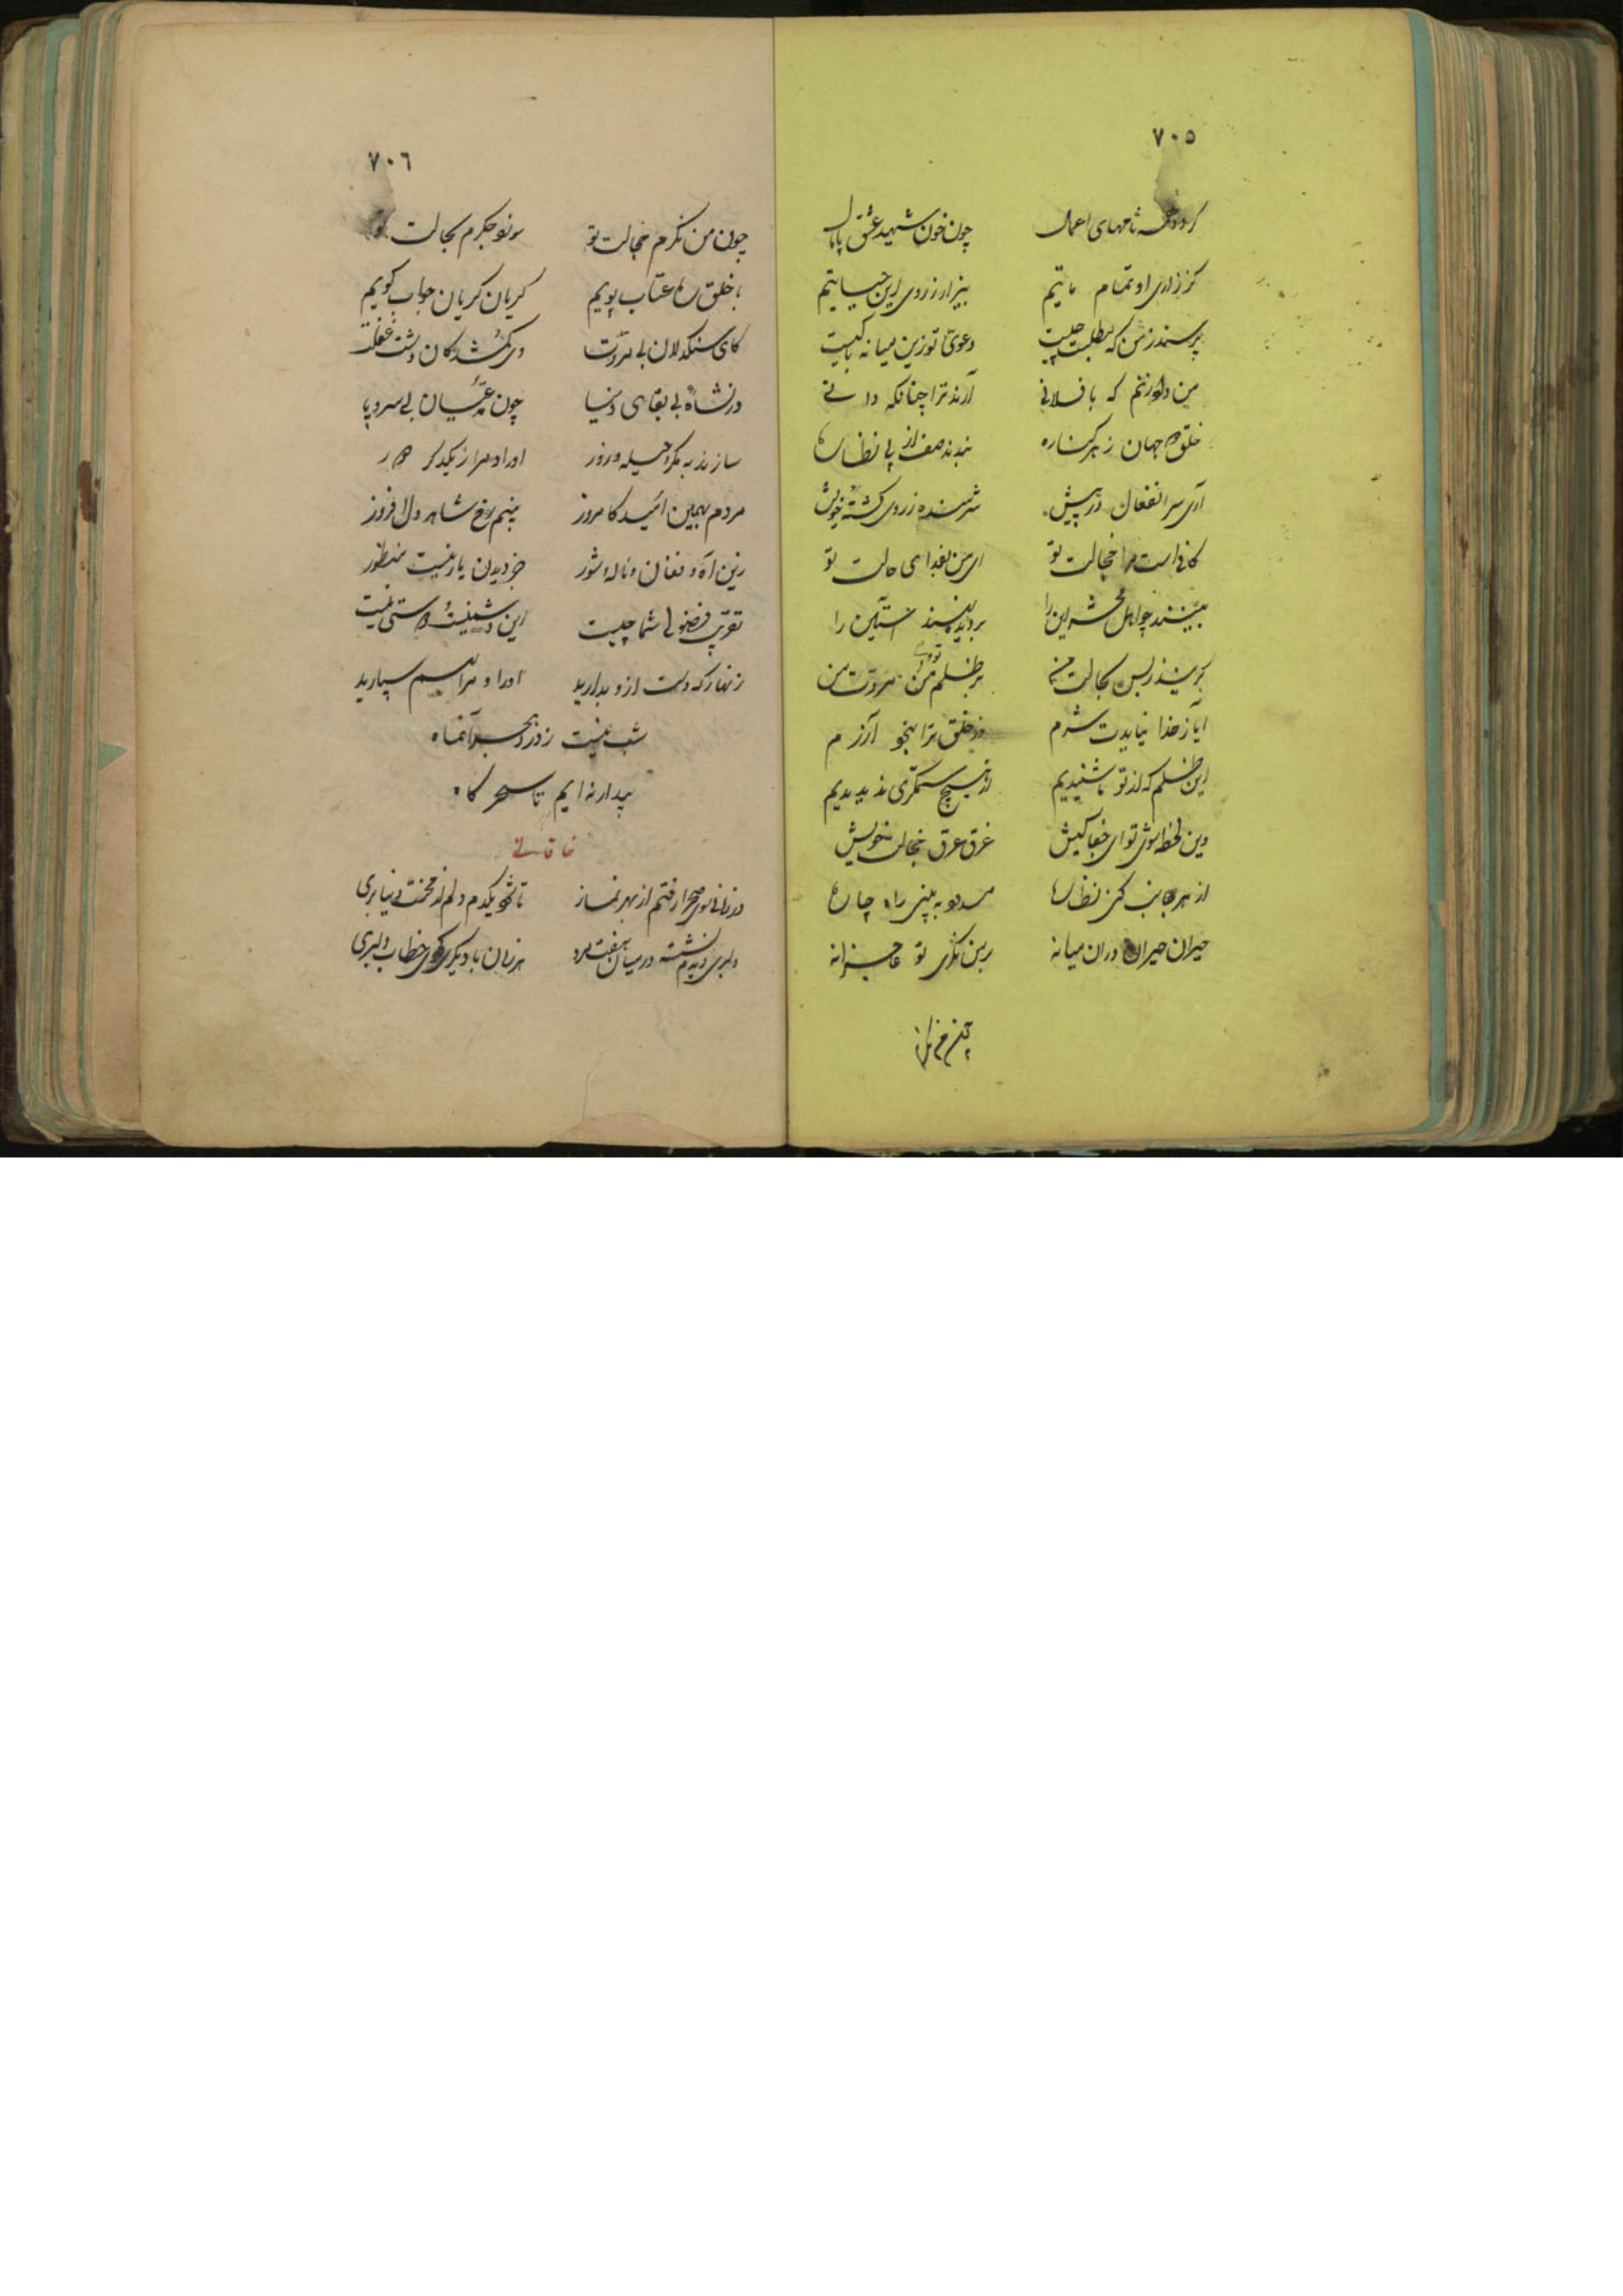 ٧٠٥
نامهای اعمال چون خون شهید عشق پامال
کز زاری او تمام ماتیم بیزار ز روی این حیاتیم
پرسند ز من که مطلبت چیست دعوی تو زین میانه با کیست
من دم نزنم که با فلانی آرند ترا چنانکه دانی
خلق جهان ز هر کناره بندند صف از پی نظاره
آری سر انفعال در پیش شرمنده ز روی کشته خویش
کافی است مرا خجالت تو ای من بفدای حالت تو
بینند چو اهل محشر این را بر دیده نهند آستین را
گریند ز بس بحالت من بر ظلم تو و مروت من
آیا ز خدا نیایدت شرم وز خلق ترا بخود آزرم
این ظلم که از تو ما شنیدیم از هیچ ستمگری ندیدیم
وین لحظه تو ای جفا کیش غرق عرق خجالت خویش
از هر جانب کنی نظاره مسدود به بینی راه چاره
حیران حیران در آن میانه بر من نگری تو عاجزانه
چون من نگرم
٧٠٦
چون من نگرم خجالت تو سوزد جگرم بحالت تو
با خلق ره عتاب پویم گریان گریان جواب گویم
کای سنگدلان بی مروت وی گمشدگان دشت غفلت
در نشاه بی بقای دنیا چون مدعیان بی سر و پا
سازند به مکر و حیله و زور او را و مرا ز یکدگر دور
مردم بهمین امید کامروز بینم رخ شاهد دل افروز
زین آه و فغان و ناله و شور جز دیدن یار نیست منظور
تقریب فضولی شما چیست این دشمنیست دوستی نیست
زنهار که دست ازو بدارید او را و مرا بهم سپارید
شب نیست ز درد هجر آنماه
بیدار نه ایم تا سحرگاه
خاقانی
در زمانی سوی صحرا رفتم از بهر نماز تا شود یکدم دلم از محنت دنیا بری
دلبری دیدم نشسته در میان هفت مرد هر زمان با دیگری کردی خطاب دلبری